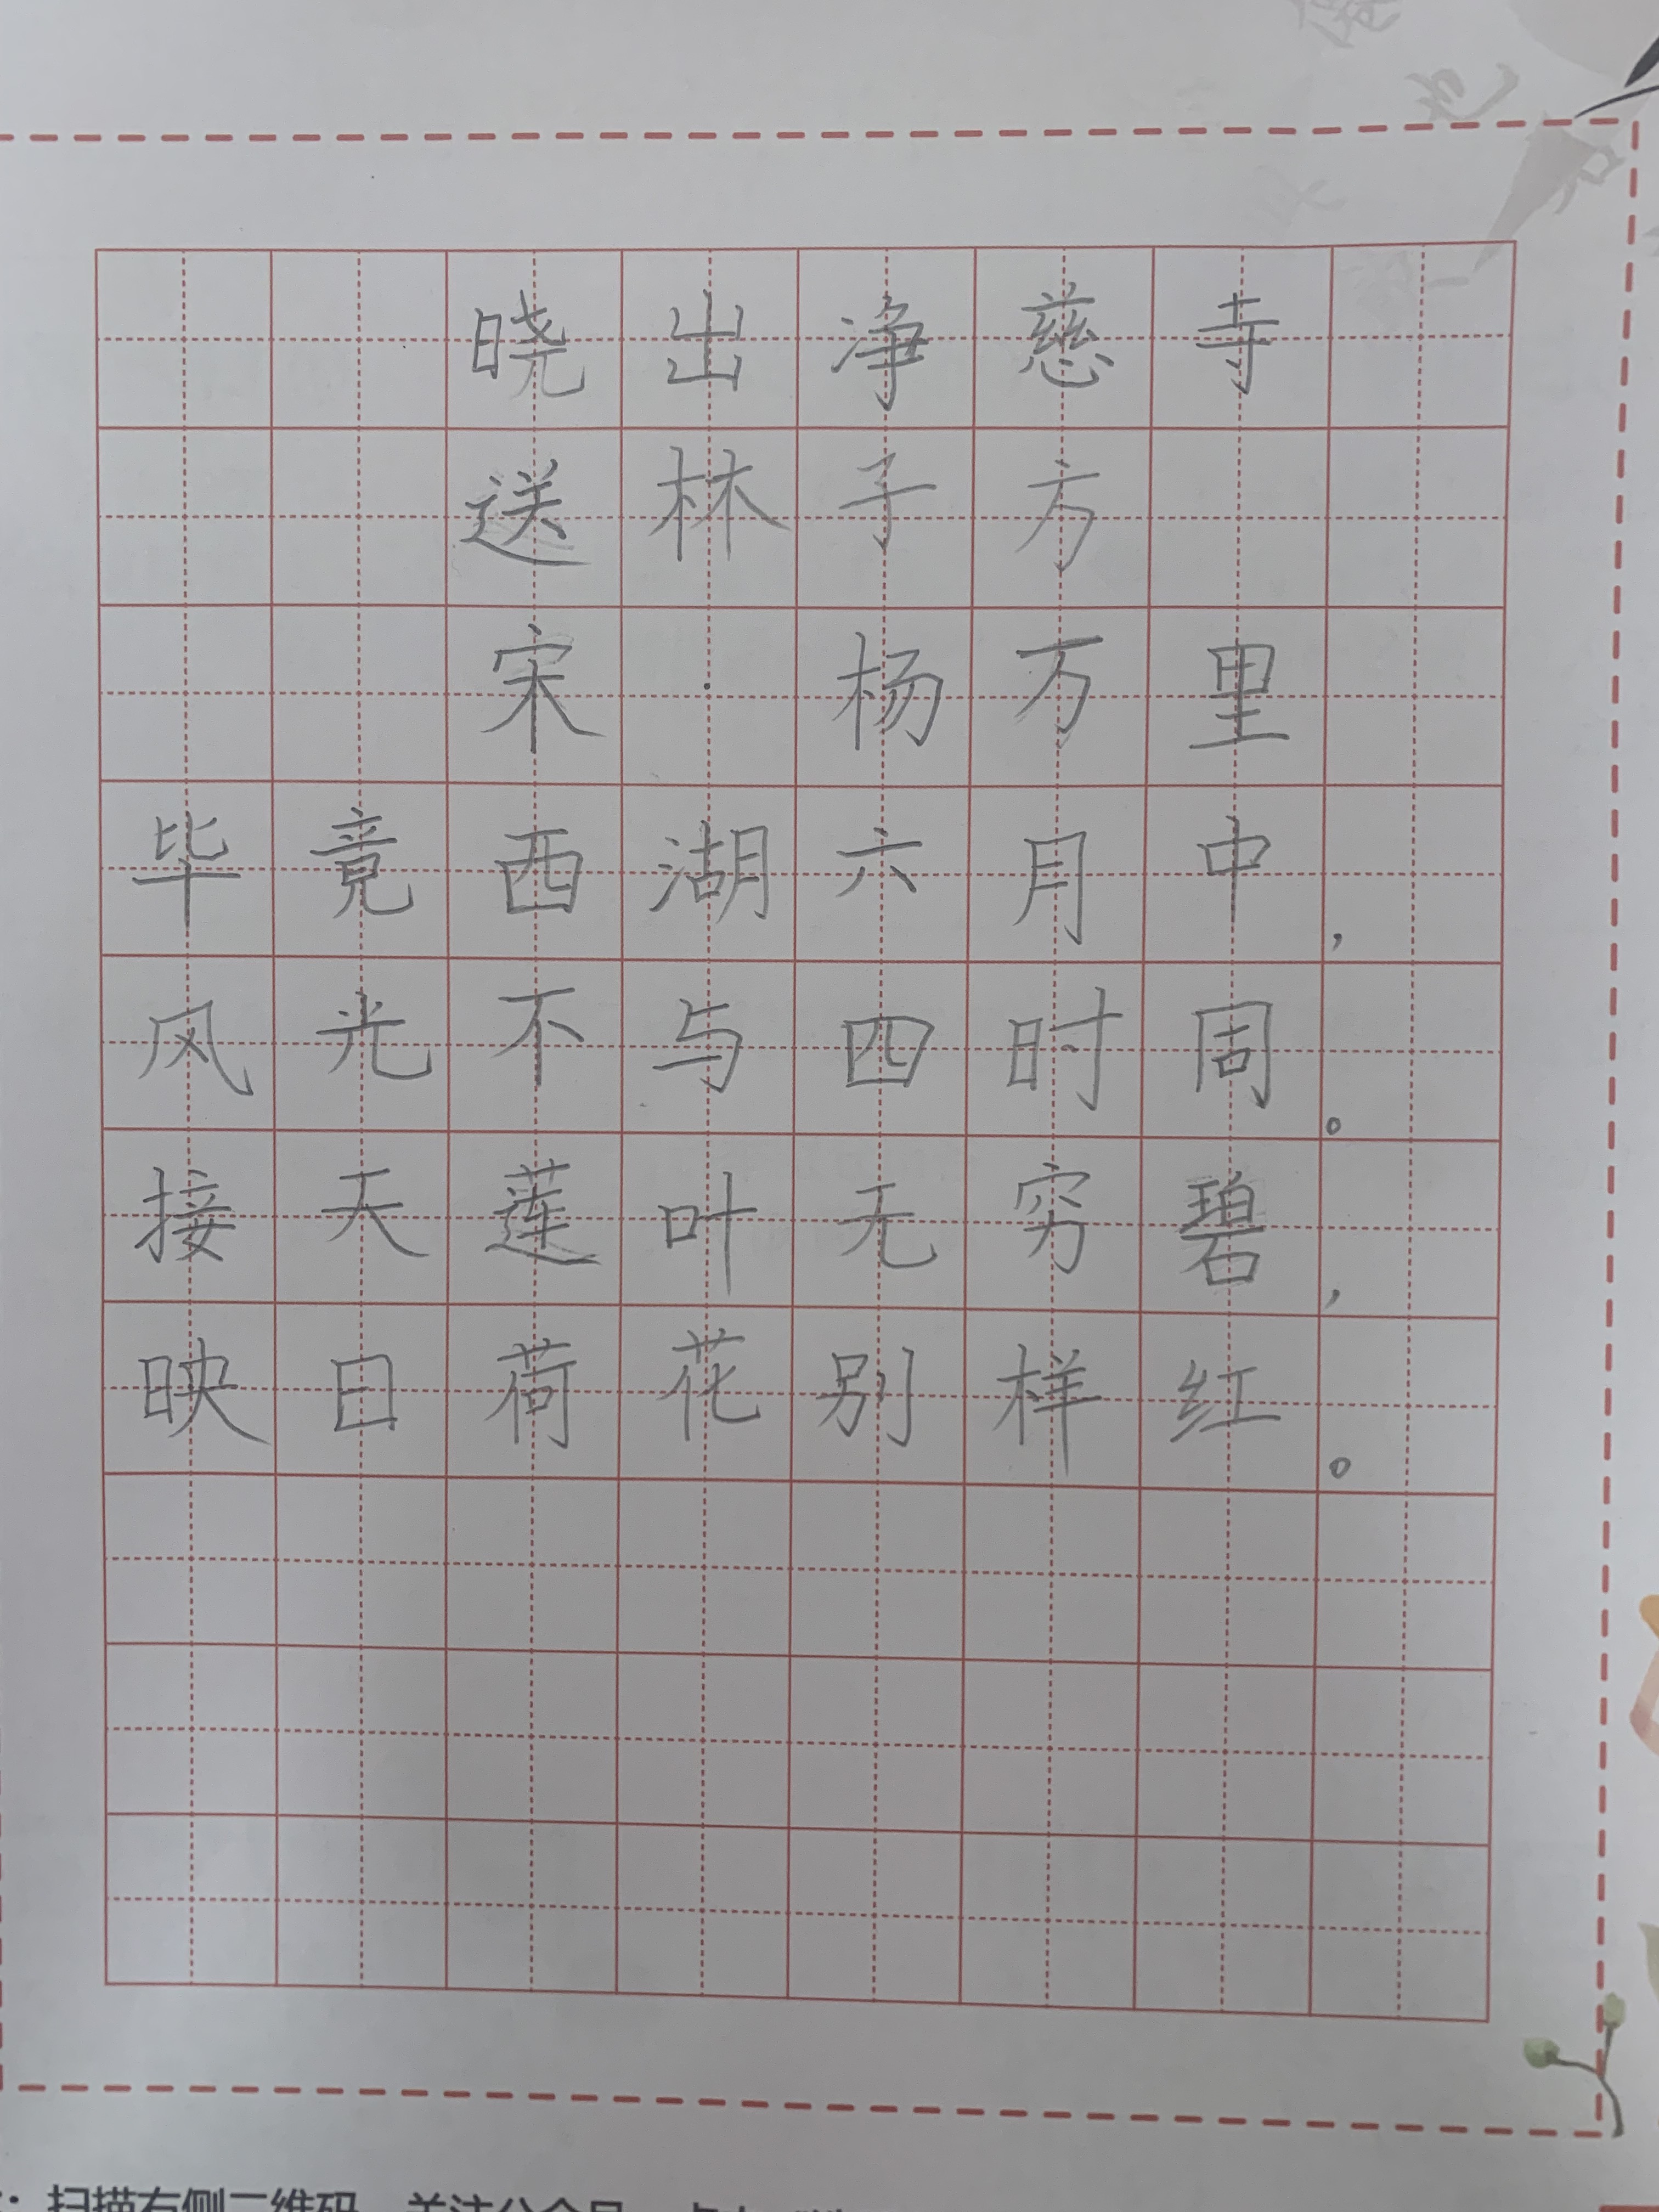 晓出净慈寺
送林子方
宋·杨万里
毕竟西湖六月中，
风光不与四时周。
接天莲叶无穷碧，
映日荷花别样红。
：扫描右侧二维码，关注公众号，点击